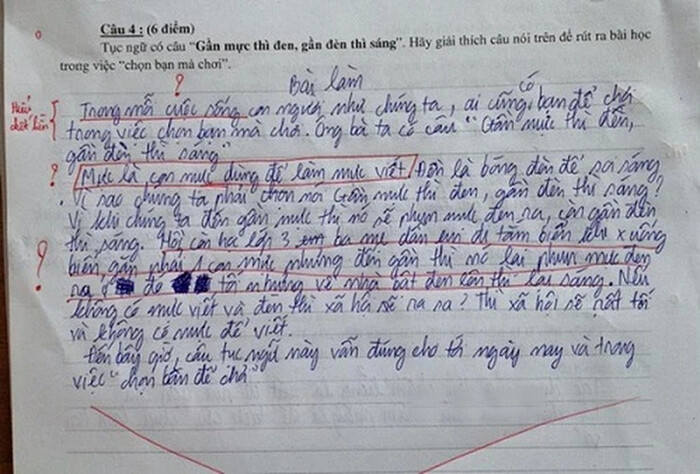 Câu 4 : (6 điểm)
Tục ngữ có câu “Gần mực thì đen, gần đèn thì sáng”. Hãy giải thích câu nói trên để rút ra bài học
trong việc “chọn bạn mà chơi”.
?
Bài làm
Trong mỗi cuộc sống con người như chúng ta, ai cũng có bạn để chơi
trong việc chọn bạn mà chơi. Ông bà ta có câu "Gần mực thì đen,
gần đèn thì sáng"
? Mực là con mực dùng để làm mực viết. Đèn là bóng đèn để soi sáng
. Vì sao chúng ta phải chọn nơi Gần mực thì đen, gần đèn thì sáng?
Vì khi chúng ta đến gần mực thì nó sẽ phun mực đen ra, còn gần đèn
thì sáng. Hồi còn học lớp 3 ba mẹ dẫn em đi tắm biển khi xuống
? biển, gặp phải 1 con mực nhưng đến gần thì nó lại phun mực đen
ra tối nhưng về nhà bật đèn lên thì lại sáng. Nếu
không có mực viết và đèn thì xã hội sẽ ra sa? Thì xã hội sẽ rất tối
và không có mực để viết.
Đến bây giờ, câu tục ngữ này vẫn đúng cho tới ngày nay và trong
việc "chọn bạn để chơi"